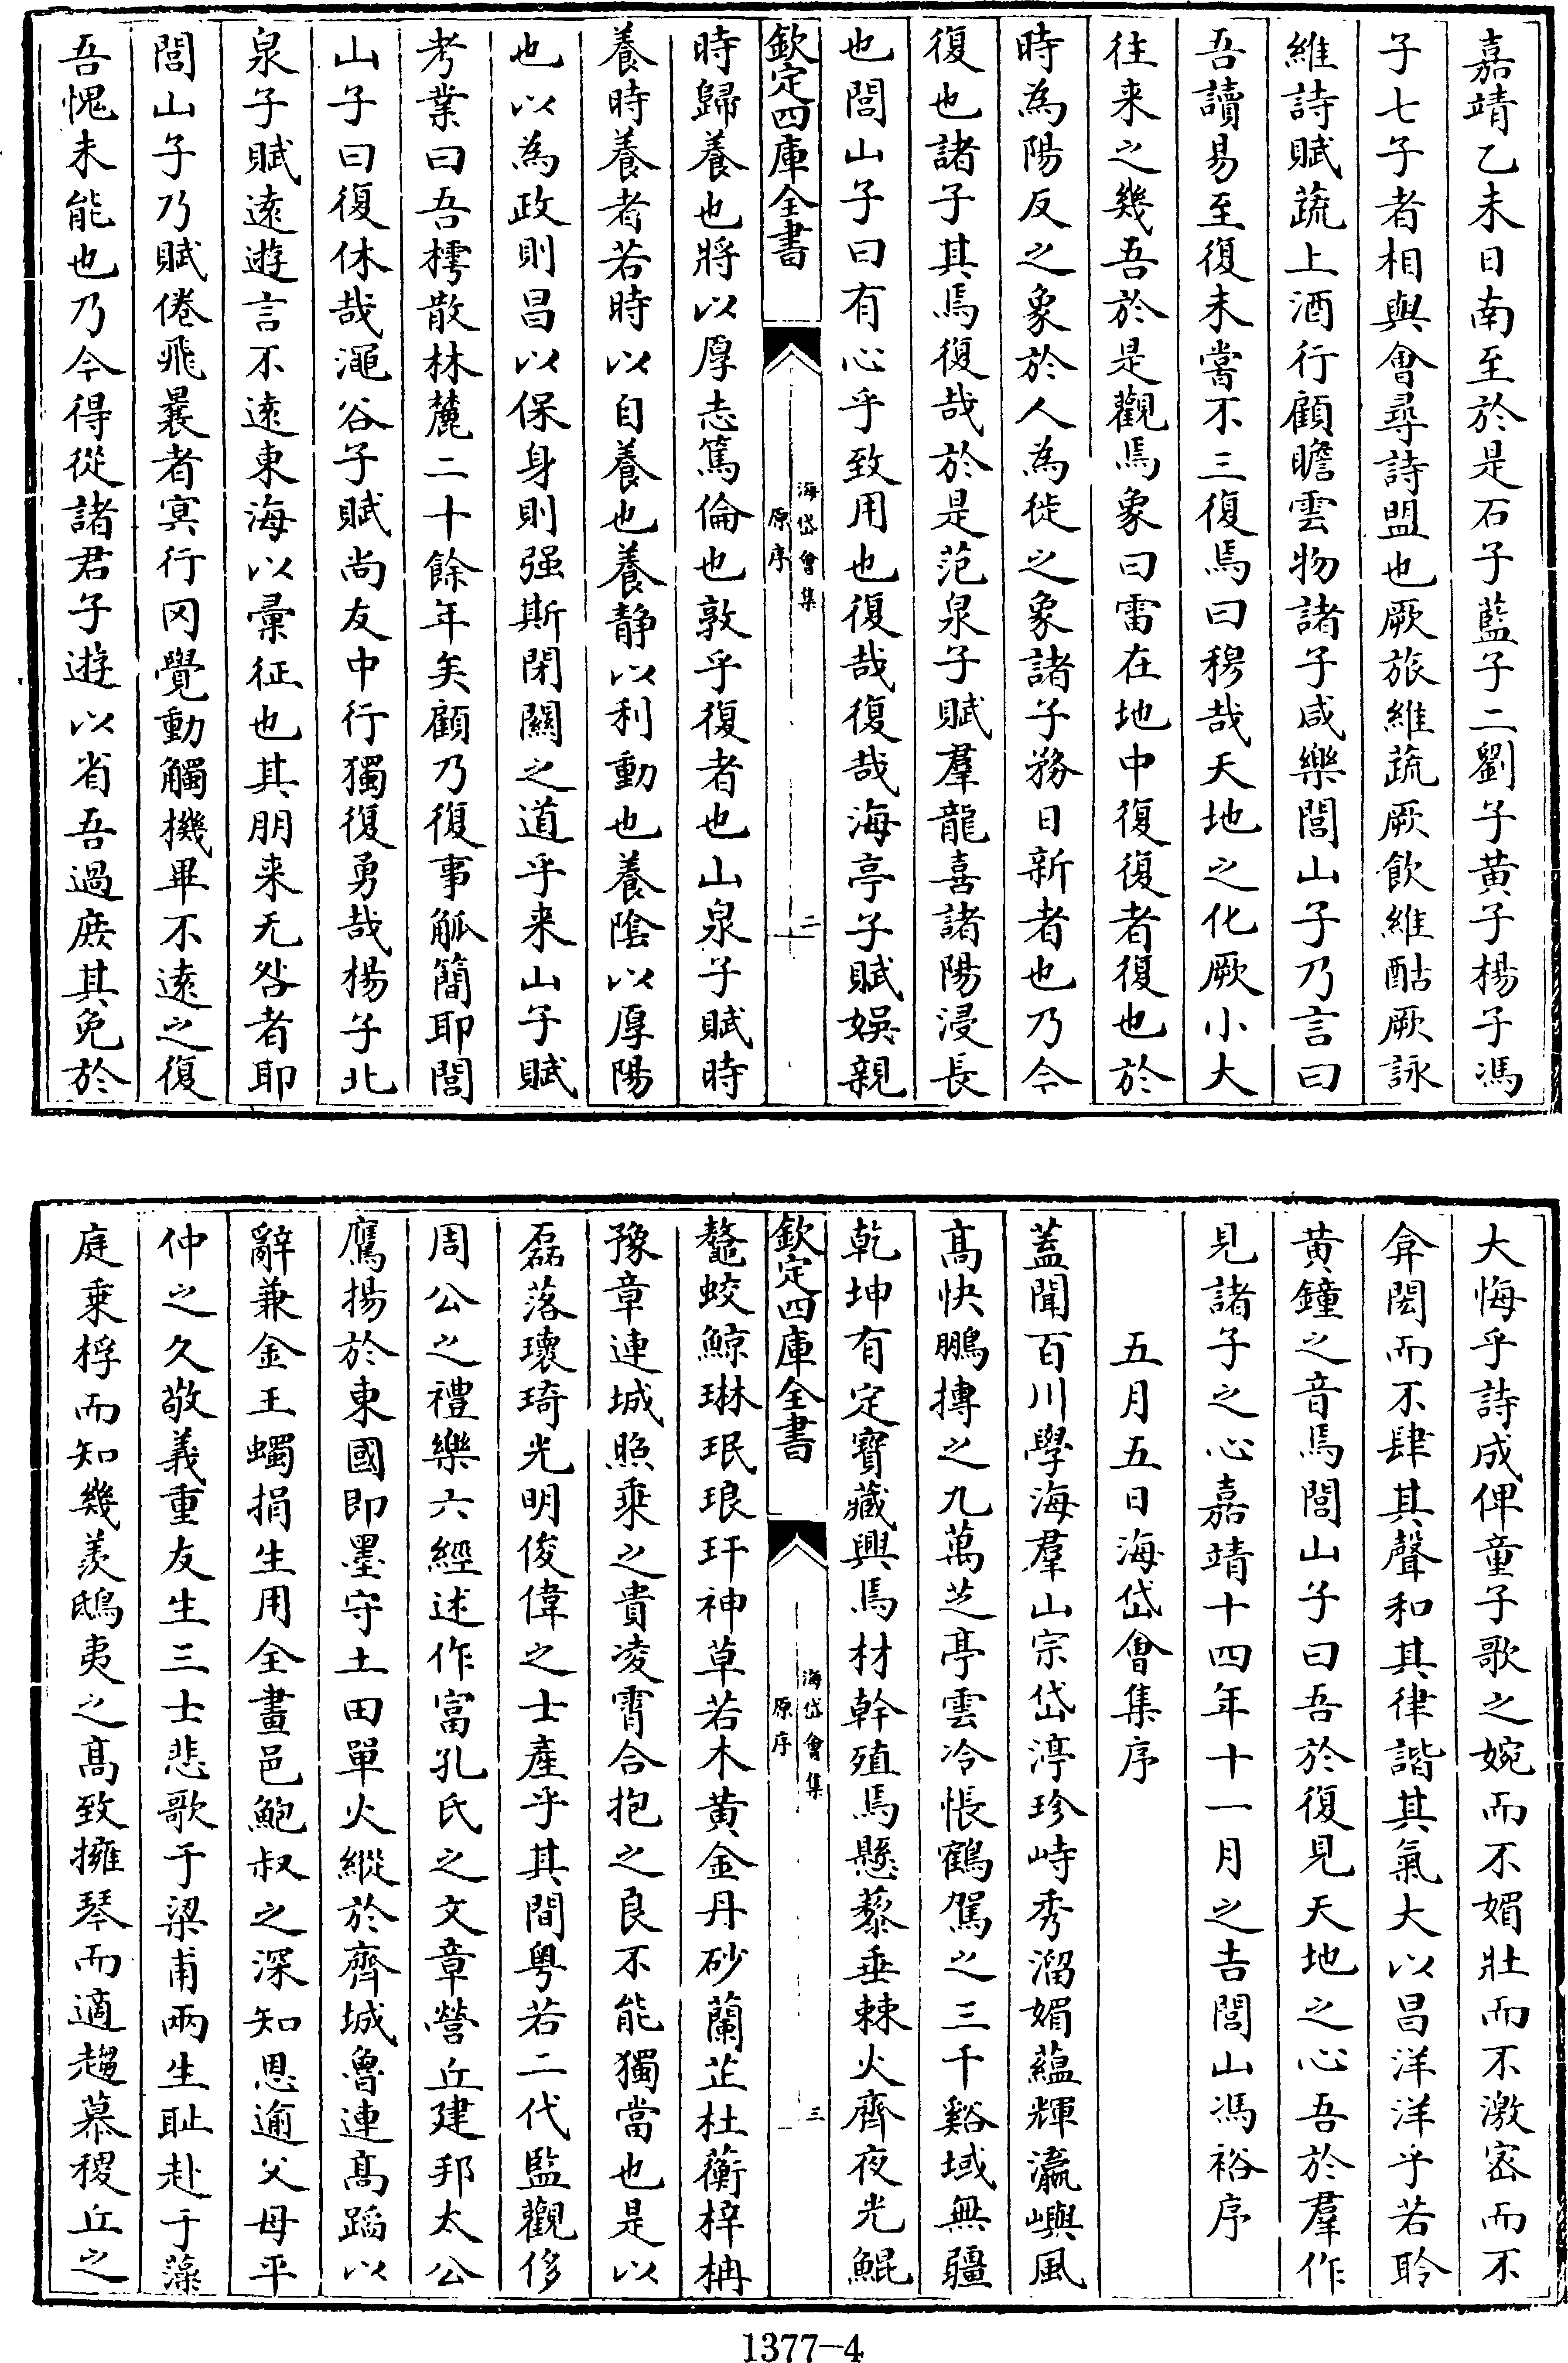 嘉靖乙未日南至於是石子藍子二劉子黄子楊子馮
子七子者相與會尋詩盟也厥旅維蔬厥飲維酤厥詠
維詩賦蔬上酒行顧瞻雲物諸子咸樂閭山子乃言曰
吾讀易至復未嘗不三復焉曰穆哉天地之化厥小大
往来之幾吾於是觀焉象曰雷在地中復復者復也於
時為陽反之象於人為徙之象諸子務日新者也乃今
復也諸子其焉復哉於是范泉子賦羣龍喜諸陽浸長
也閭山子曰有心乎致用也復哉復哉海亭子賦娛親
欽定四庫全書
海岱會集
原序
二
時歸養也將以厚志篤倫也敦乎復者也山泉子賦時
養時養者若時以自養也養静以利動也養陰以厚陽
也以為政則昌以保身則强斯閉關之道乎来山子賦
考業曰吾樗散林麓二十餘年矣顧乃復事觚簡耶閭
山子曰復休哉澠谷子賦尚友中行獨復勇哉楊子北
泉子賦遠遊言不遠東海以彙征也其朋来无咎者耶
閭山子乃賦倦飛曩者冥行罔覺動觸機畢不遠之復
吾愧未能也乃今得從諸君子遊以省吾過庶其免於
大悔乎詩成俾童子歌之婉而不媚壯而不激宻而不
弇閎而不肆其聲和其律諧其氣大以昌洋洋乎若聆
黄鐘之音焉閭山子曰吾於復見天地之心吾於羣作
見諸子之心嘉靖十四年十一月之吉閭山馮裕序
五月五日海岱會集序
蓋聞百川學海羣山宗岱渟珍峙秀溜媚藴輝瀛嶼風
髙快鵬摶之九萬芝亭雲冷悵鶴駕之三千谿域無疆
乾坤有定寳藏興焉材幹殖焉懸藜垂棘火齊夜光鯤
欽定四庫全書
海岱會集
原序
三
鼇蛟鯨琳珉琅玕神草若木黄金丹砂蘭芷杜蘅梓柟
豫章連城照乘之貴凌霄合抱之良不能獨當也是以
磊落瓌琦光明俊偉之士產乎其間粤若二代監觀侈
周公之禮樂六經述作富孔氏之文章營丘建邦太公
鷹揚於東國即墨守土田單火縱於齊城魯連髙蹈以
辭兼金王蠋捐生用全畫邑鮑叔之深知恩逾父母平
仲之久敬義重友生三士悲歌于梁甫兩生耻赴于藻
庭乗桴而知幾羨鴟夷之髙致擁琴而適趨慕稷丘之
1377-4